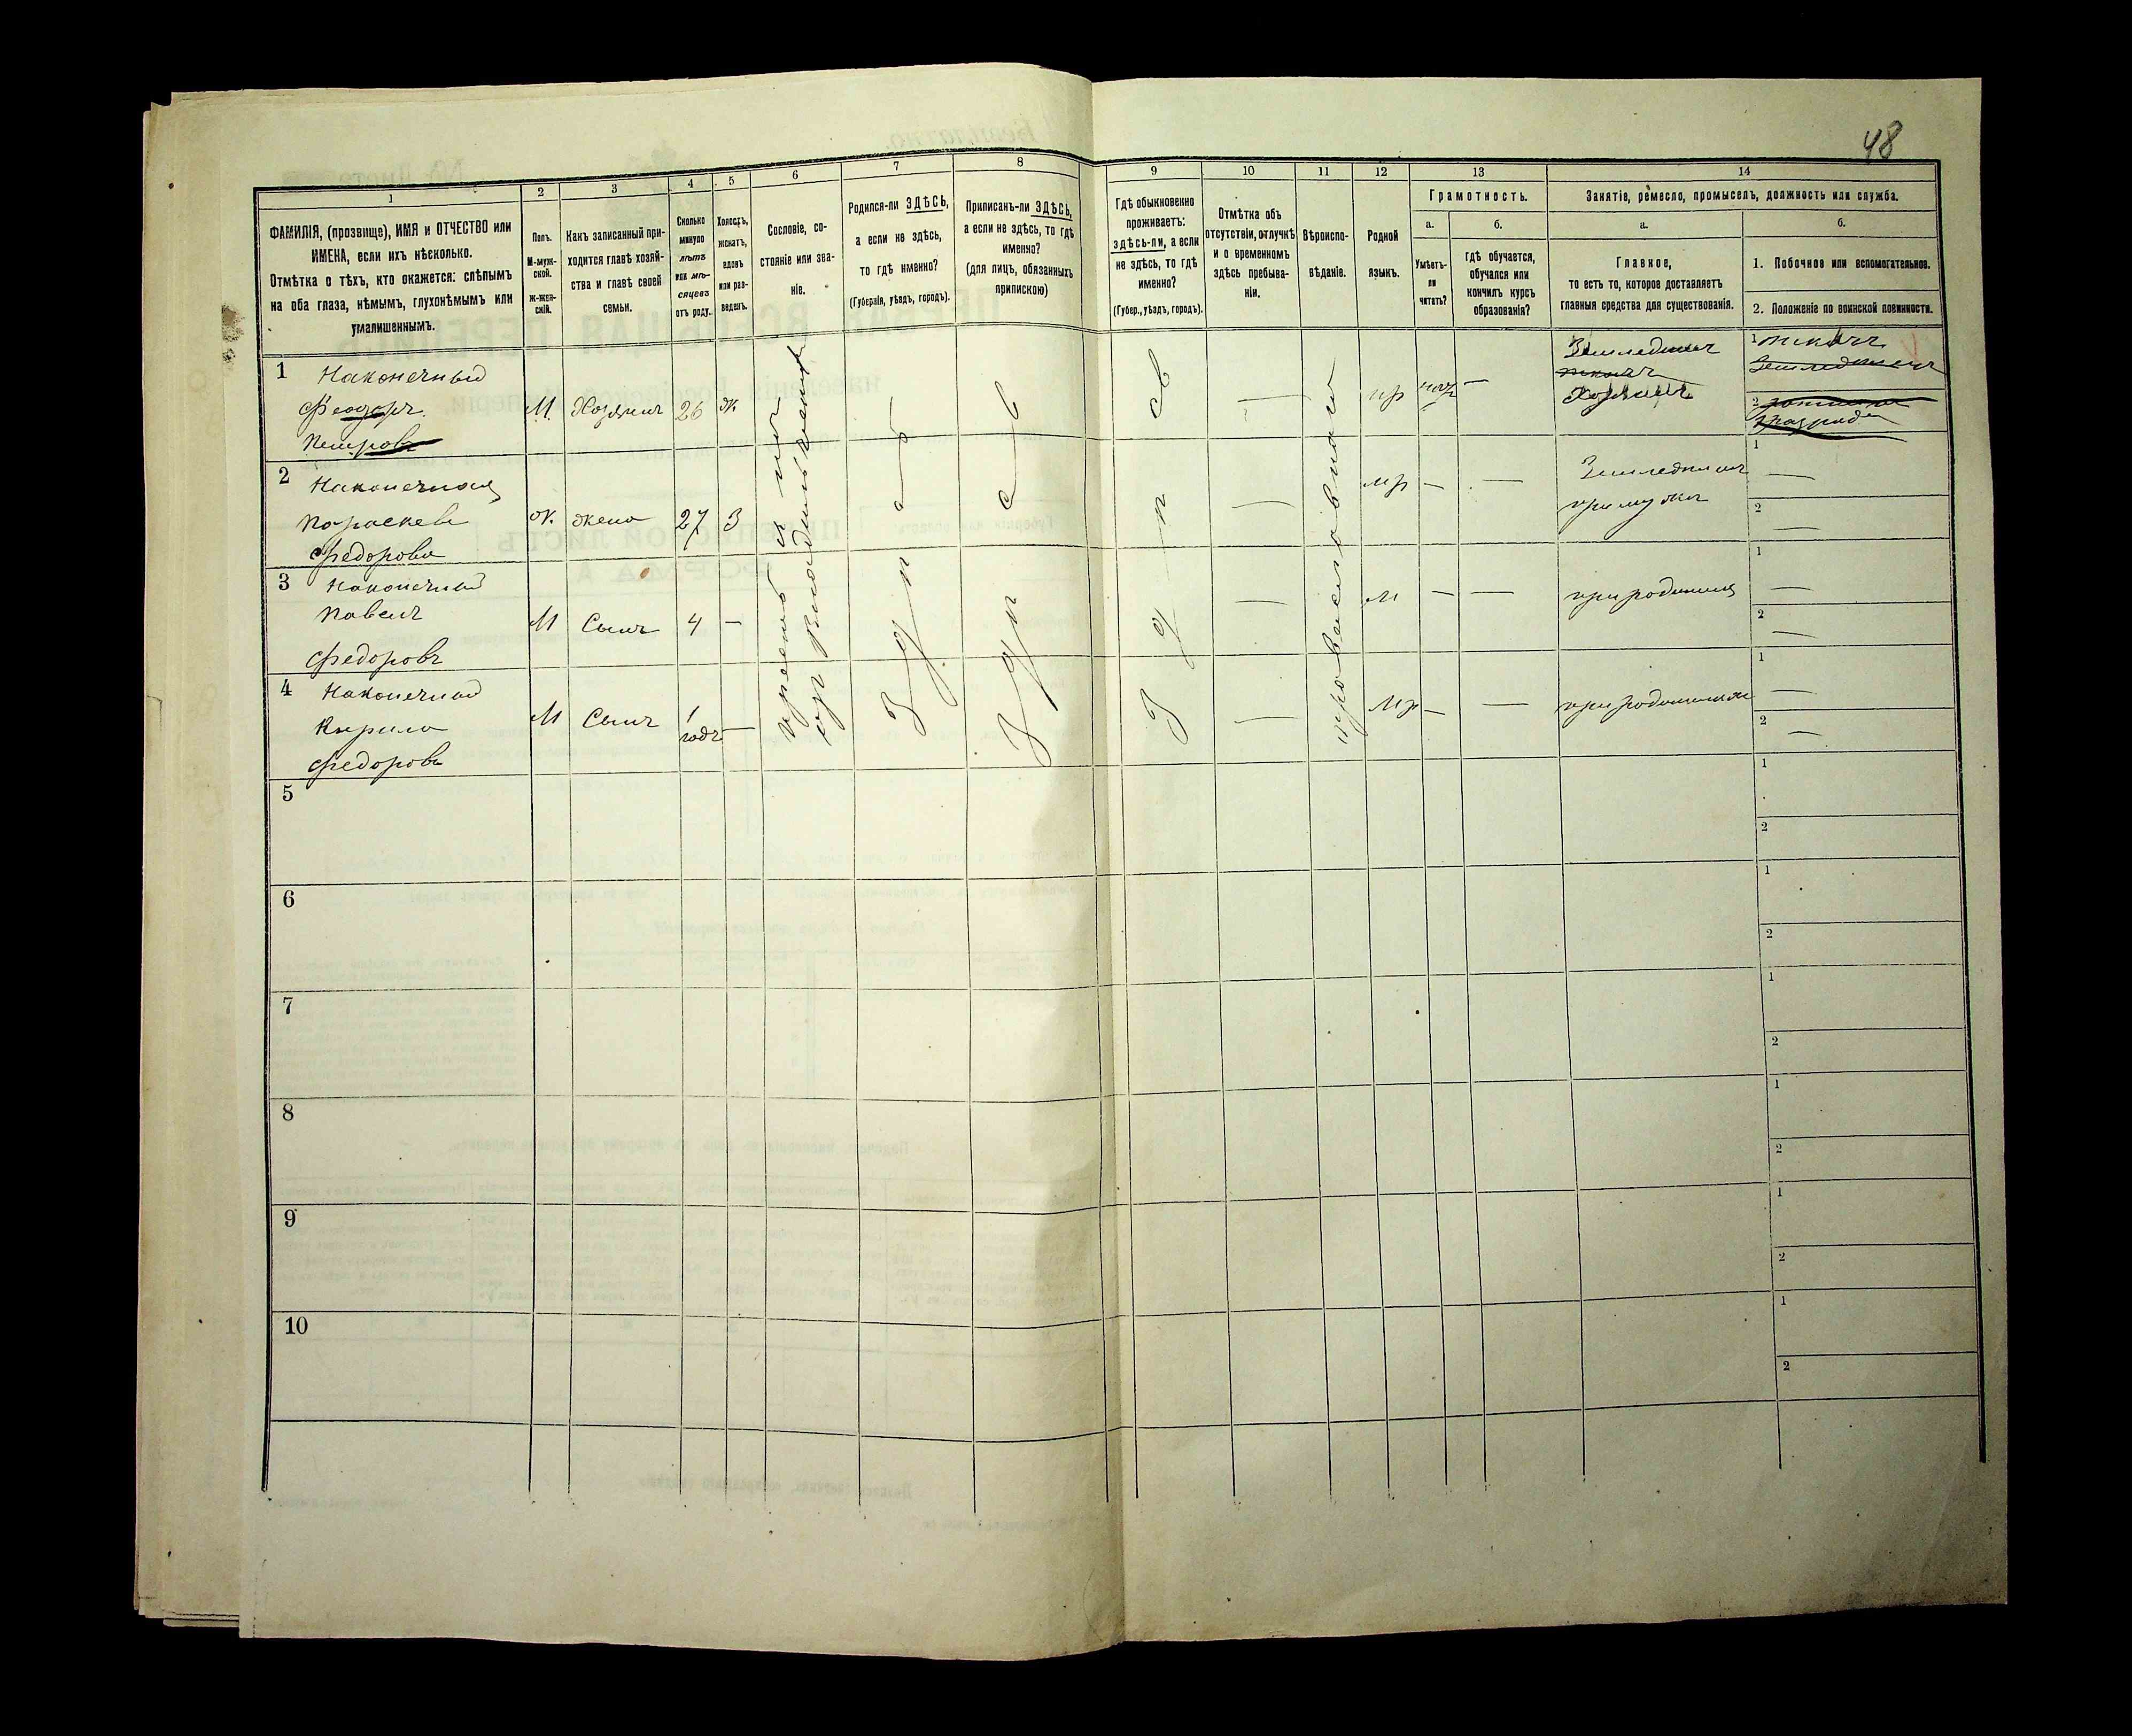 48
1
2
3
4
5
6
7
8
9
10
11
12
13
14
ФАМИЛІЯ, (прозвище), ИМЯ и ОТЧЕСТВО или
ИМЕНА, если ихъ нѣсколько.
Отмѣтка о тѣхъ, кто окажется: слѣпымъ
на оба глаза, нѣмымъ, глухонѣмымъ или
умалишеннымъ.
Полъ.
М-муж-
ской.
Ж-жен-
скій.
Какъ записанный при-
ходится главѣ хозяй-
ства и главѣ своей
семьи.
Сколько
минуло
лѣтъ
или мѣ-
сяцевъ
отъ роду.
Холостъ,
женатъ,
вдовъ
или раз-
веденъ.
Сословіе, со-
стояніе или зва-
ніе.
Родился-ли ЗДѢСЬ,
а если не здѣсь,
то гдѣ именно?
(Губернія, уѣздъ, городъ).
Приписанъ-ли ЗДѢСЬ,
а если не здѣсь, то гдѣ
именно?
(для лицъ, обязанныхъ
припискою)
Гдѣ обыкновенно
проживаетъ:
здѣсь-ли, а если
не здѣсь, то гдѣ
именно?
(Губер., уѣздъ, городъ).
Отмѣтка объ
отсутствіи, отлучкѣ
и о временномъ
здѣсь пребыва-
ніи.
Вѣроиспо-
вѣданіе.
Родной
языкъ.
Грамотность.
а.
б.
Умѣетъ-
ли
читать?
гдѣ обучается,
обучался или
кончилъ курсъ
образованія?
Занятіе, ремесло, промыселъ, должность или служба.
а.
б.
Главное,
то есть то, которое доставляетъ
главныя средства для существованія.
1. Побочное или вспомогательное.
2. Положеніе по воинской повинности.
1 Наконечный
Феодоръ
Петровъ
М. Хозяинъ 26 ж.
Земледелец
ткачъ
Хозяинъ
1 ткачъ
2
2 Наконечная
Параскева
Федорова
ж. жена 27 З
мр — —
Земледелец
при муже
1 —
2 —
3 Наконечный
Павелъ
Федоровъ
М Сынъ 4 —
М — —
при родителях
1 —
2 —
4 Наконечный
Кирило
Федоровъ
М Сынъ 1
годъ —
Мр — —
при родителях
1 —
2 —
5
1
2
6
1
2
7
1
2
8
1
2
9
1
2
10
1
2